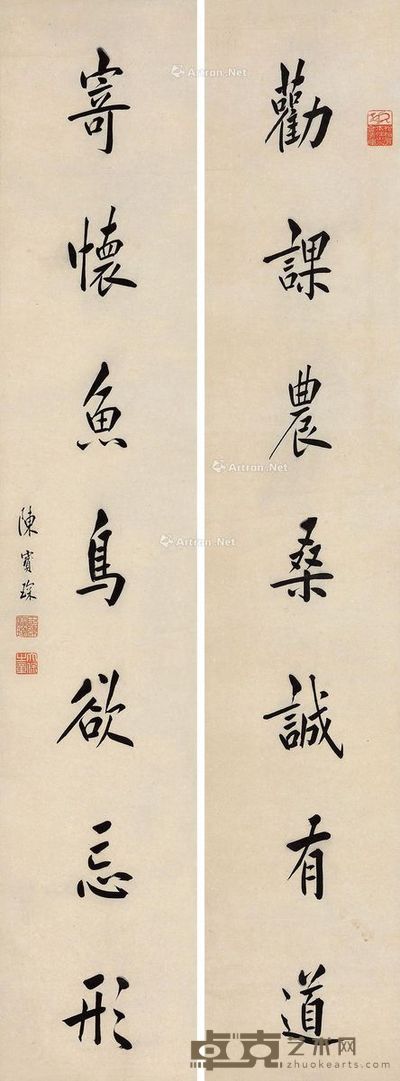 勸課農桑誠有道
寄懷魚鳥欲忘形
陳寶琛
Artron.Net
Artron.Net
Artron.Net
Artron.Net
卓克艺术网
www.zhuokearts.com